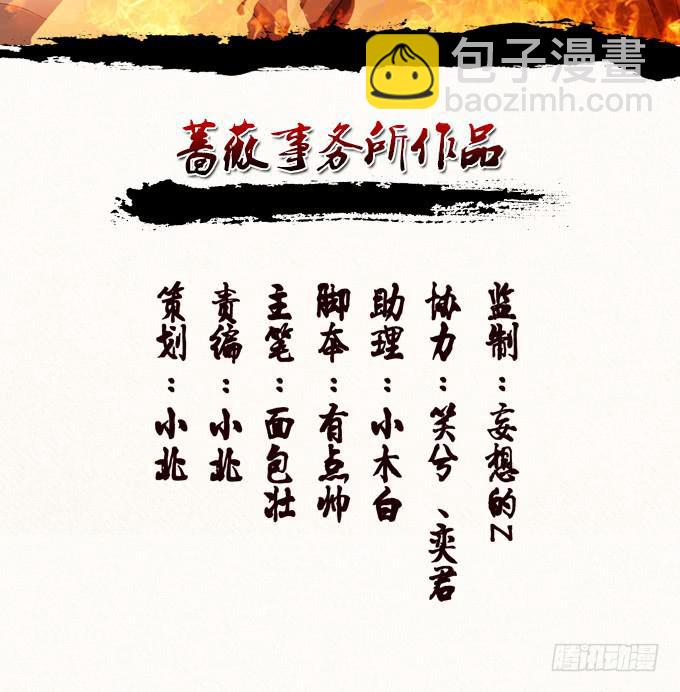 包子漫畫
baozimh.com
蔷薇事务所作品
监制：妄想的Z
协力：笑兮、奕君
助理：小木白
脚本：有点帅
主笔：面包壮
责编：小北
策划：小北
腾讯动漫